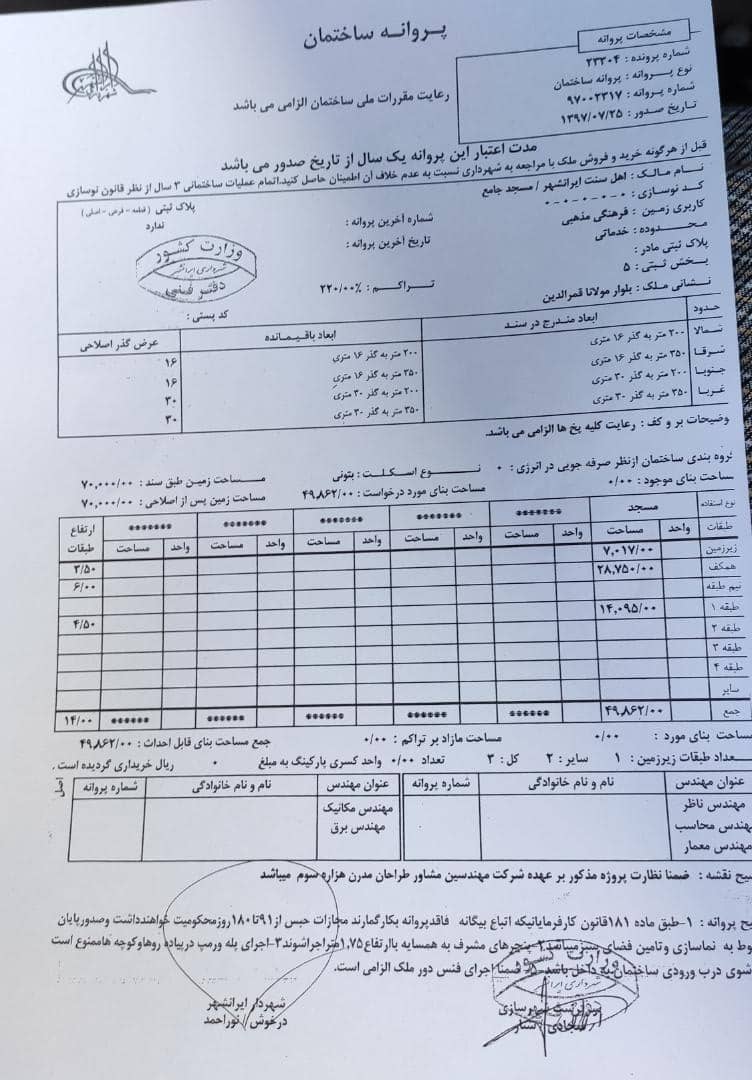 پروانه ساختمان
رعایت مقررات ملی ساختمان الزامی می باشد
مشخصات پروانه
شماره پرونده : ۲۳۳۰۴
نوع پروانه : پروانه ساختمان
شماره پروانه : ۹۷۰۰۲۳۱۷
تاریخ صدور : ۱۳۹۷/۰۷/۲۵
مدت اعتبار این پروانه یک سال از تاریخ صدور می باشد
قبل از هرگونه خرید و فروش ملک با مراجعه به شهرداری نسبت به عدم خلاف آن اطمینان حاصل کنید.اتمام عملیات ساختمانی ۳ سال از نظر قانون نوسازی
نام مالک : اهل سنت ایرانشهر / مسجد جامع
کد نوسازی : ۰-۰-۰-۰-۰-۰
شماره آخرین پروانه :
پلاک ثبتی ( قطعه - فرعی - اصلی )
ندارد
کاربری زمین : فرهنگی مذهبی
تاریخ آخرین پروانه :
محدوده : خدماتی
پلاک ثبتی مادر :
بخش ثبتی : ۵
تراکم : ۲۲۰/۰۰%
نشانی ملک : بلوار مولانا قمرالدین
کد پستی :
وزارت کشور
شهرداری ایرانشهر
دفتر فنی
حدود ابعاد مندرج در سند ابعاد باقیمانده عرض گذر اصلاحی
شمالا ۲۰۰ متر به گذر ۱۶ متری ۲۰۰ متر به گذر ۱۶ متری ۱۶
شرقا ۳۵۰ متر به گذر ۱۶ متری ۳۵۰ متر به گذر ۱۶ متری ۱۶
جنوبا ۲۰۰ متر به گذر ۳۰ متری ۲۰۰ متر به گذر ۳۰ متری ۳۰
غربا ۳۵۰ متر به گذر ۳۰ متری ۳۵۰ متر به گذر ۳۰ متری ۳۰
وضیحات بر و کف : رعایت کلیه پخ ها الزامی می باشد.
روه بندی ساختمان ازنظر صرفه جویی در انرژی : ۰ نوع اسکلت : بتونی مساحت زمین طبق سند : ۷۰,۰۰۰/۰۰
ساحت بنای موجود : ۰/۰۰ مساحت بنای مورد درخواست : ۴۹,۸۶۲/۰۰ مساحت زمین پس از اصلاحی : ۷۰,۰۰۰/۰۰
نوع استفاده مسجد ******* ******* ******* ******* ******* ارتفاع
طبقات واحد مساحت واحد مساحت واحد مساحت واحد مساحت واحد مساحت واحد مساحت طبقات
زیرزمین ۷,۰۱۷/۰۰ ۳/۵۰
همکف ۲۸,۷۵۰/۰۰ ۶/۰۰
نیم طبقه
طبقه ۱ ۱۴,۰۹۵/۰۰ ۴/۵۰
طبقه ۲
طبقه ۳
طبقه ۴
سایر
جمع ۴۹,۸۶۲/۰۰ ****** ****** ****** ****** ****** ۱۴/۰۰
ساحت بنای مورد : ۰/۰۰ مساحت مازاد بر تراکم : ۰/۰۰ جمع مساحت بنای قابل احداث : ۴۹,۸۶۲/۰۰
عداد طبقات زیرزمین : ۱ سایر : ۲ کل : ۳ تعداد ۰/۰۰ واحد کسری پارکینگ به مبلغ ۰ ریال خریداری گردیده است .
عنوان مهندس نام و نام خانوادگی شماره پروانه عنوان مهندس نام و نام خانوادگی شماره پروانه
مهندس ناظر مهندس مکانیک
مهندس محاسب مهندس برق
مهندس معمار
یح نقشه : ضمنا نظارت پروژه مذکور بر عهده شرکت مهندسین مشاور طراحان مدرن هزاره سوم میباشد
یح پروانه : ۱-طبق ماده ۱۸۱قانون کارفرمایانیکه اتباع بیگانه فاقدپروانه بکارگمارند مجازات حبس از۹۱تا۱۸۰روزمحکومیت خواهندداشت وصدورپایان
وط به نماسازی وتامین فضای سبزمیباشد۲-پنجرهای مشرف به همسایه باارتفاع۱,۷۵متراجراشوند۳-اجرای پله ورمپ درپیاده روهاوکوچه هاممنوع است
شوی درب ورودی ساختمان به داخل باشد ضمنا اجرای فنس دور ملک الزامی است.
وزارت کشور
شهرداری
شهردار ایرانشهر
درخوش نوراحمد
سرپرست شهرسازی
سجادی ستار